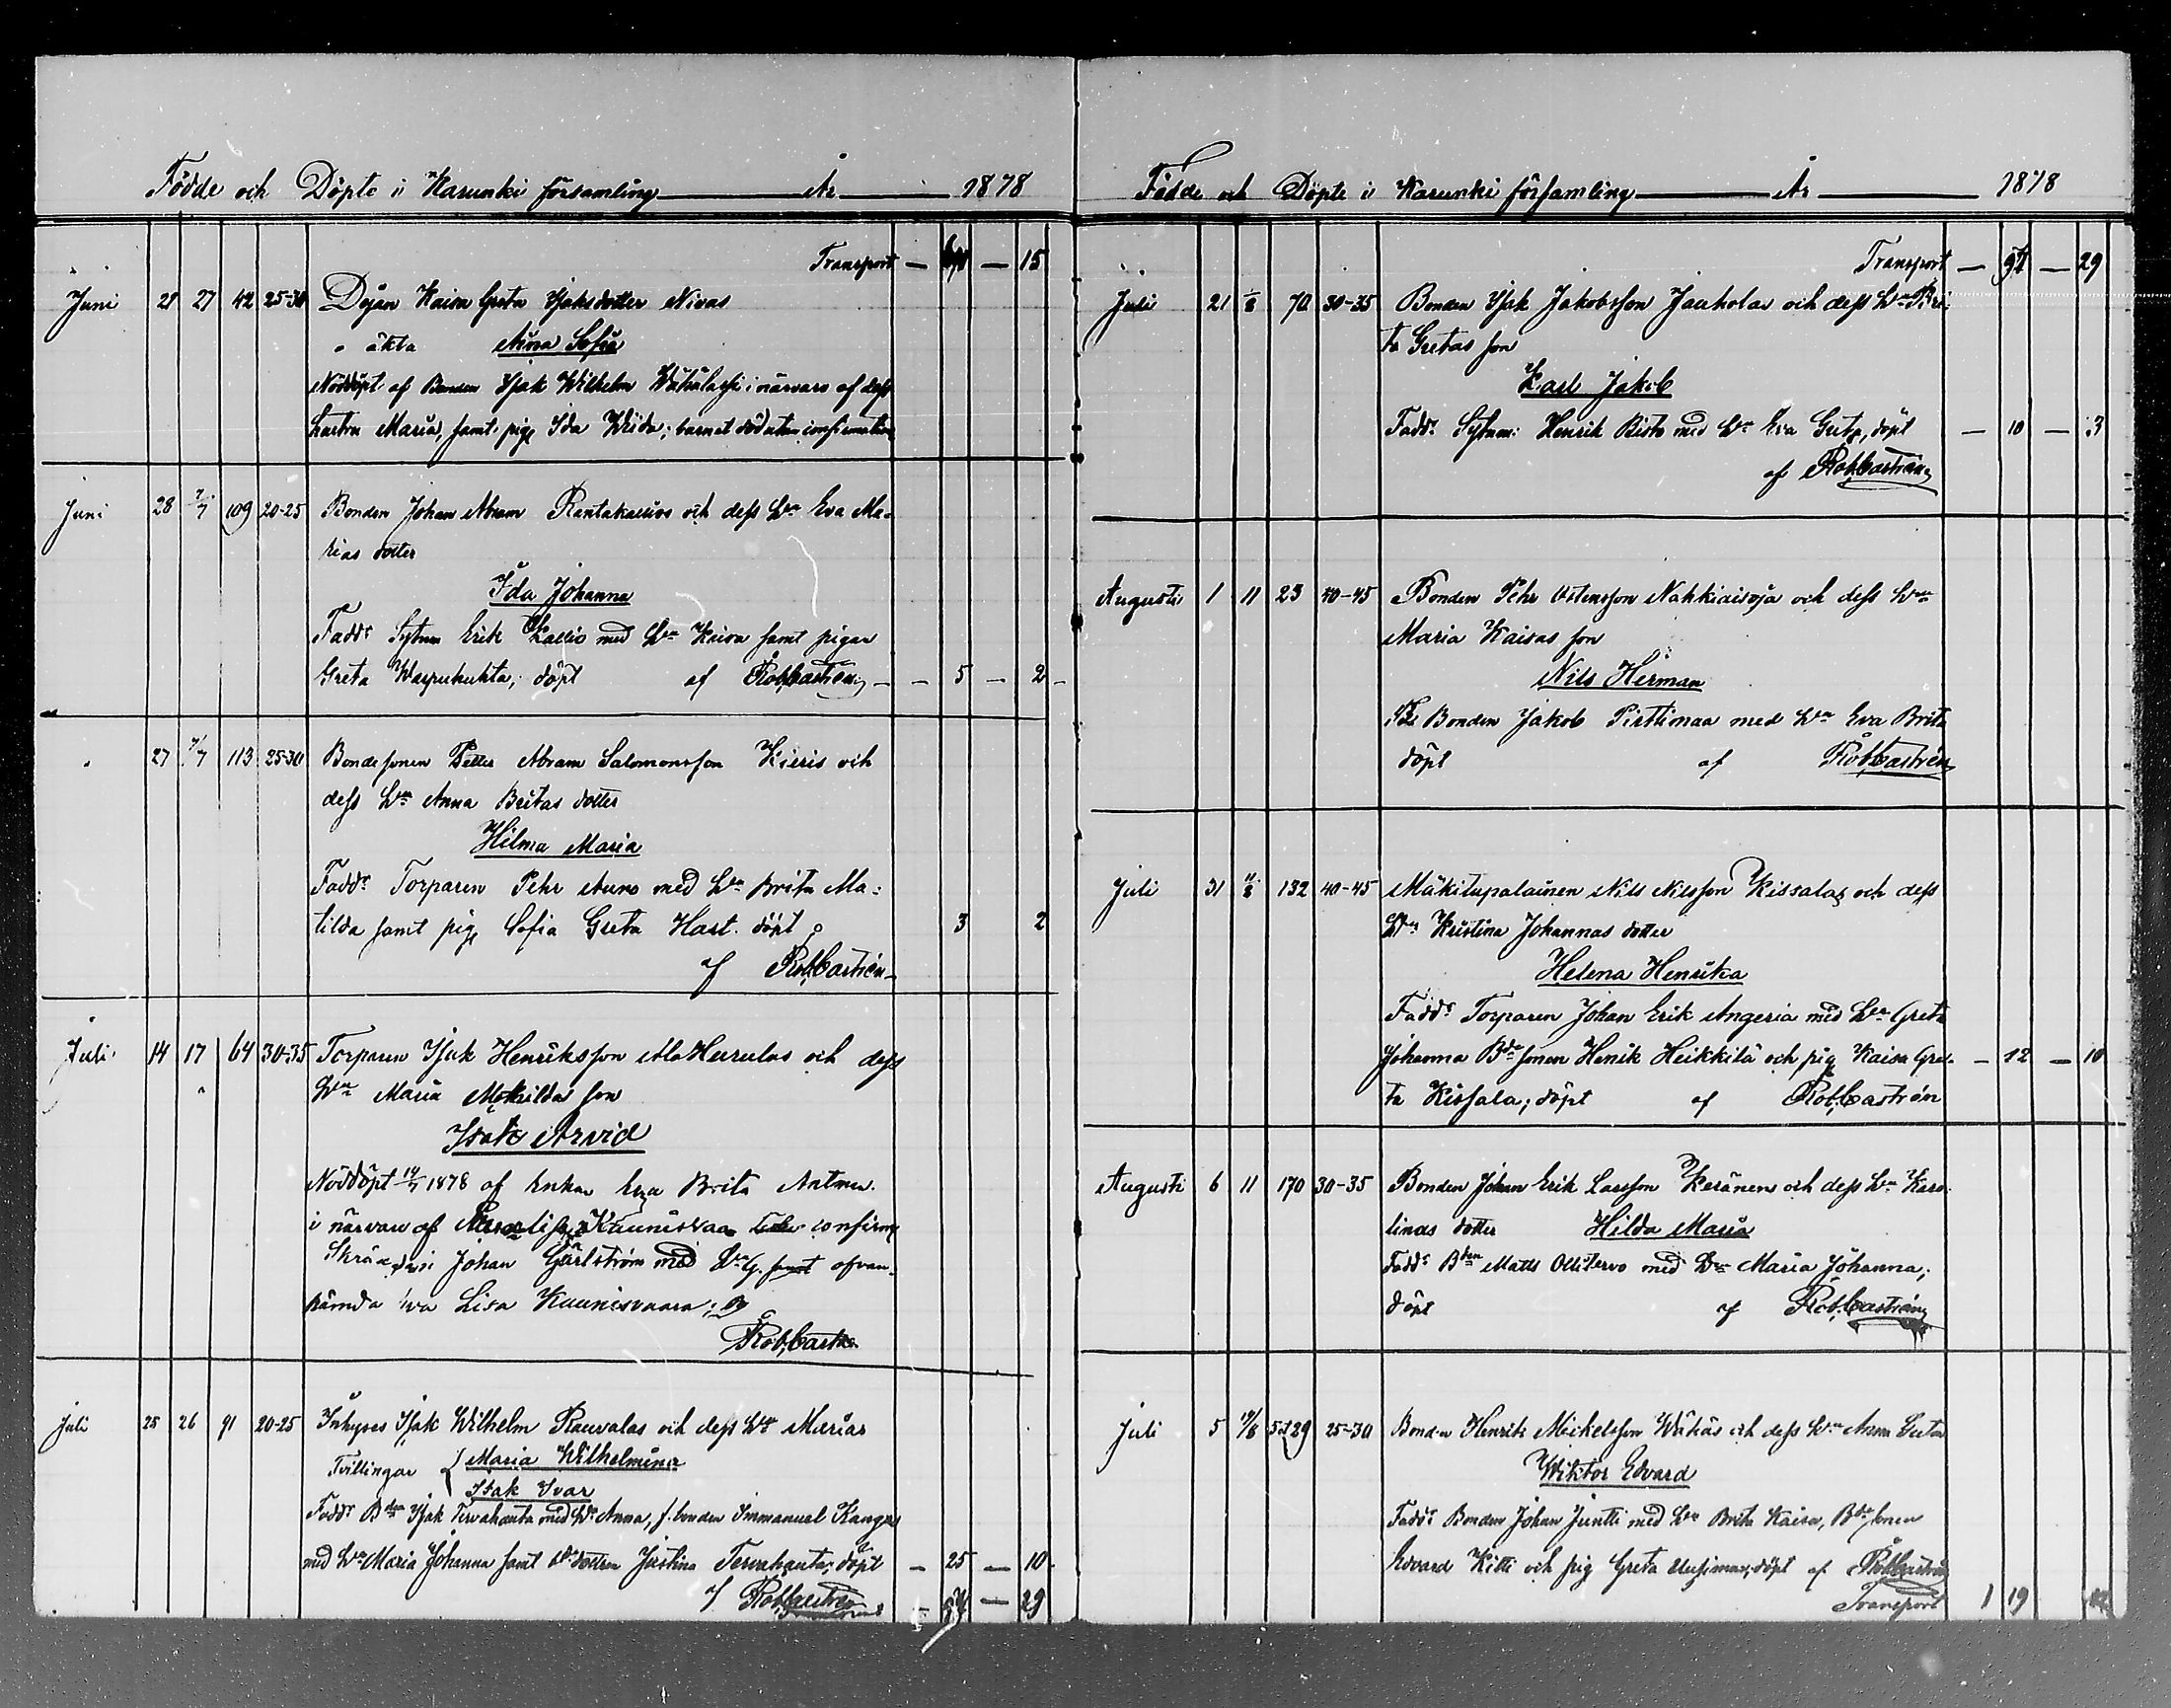 Födde och Döpte i Karunki församling År 1878
Transport — — 15
Juni 21 27 42 25-30 Dejan Kaisa Greta Isaksdotter Nivas
o äkta Aina Sofia
Nöddöpt af Bonden Isak Wilhelm i närvaro af dess
hustru Maria, samt pig Ida Wiida; barnet död utan confirmation
Juni 28 7/7 109 20-25 Bonden Johan Abram Rantakallios och dess Hu Eva Ma-
rias dotter
Ida Johanna
Faddr Sytnm Erik Kallio med Hu Kaisa samt pigan
Greta Warpukukta; döpt af Rob. Castrén — — 5 — 2 —
" 27 7/7 113 25-30 Bondesonen Petter Abram Salomonsson Kieris och
dess Hu Anna Britas dotter
Hilma Maria
Faddr Torparen Pehr Auno med Hu Brita Ma-
tilda samt pig Sofia Greta Hast. döpt 3 2
af Rob. Castrén
Juli 14 17 64 30-35 Torparen Isak Henriksson Ala Herrulas och dess
Hu Maria Matilda son
Isak Arvid
Nöddöpt 14/7 1878 af Enkan Eva Brita
i närvaro af Kaunisvaa confirm
Johan med Hu G. samt ofvan-
nämda Eva Lisa Kaunisvaara;
Rob. Castrén
Juli 25 26 91 20-25 Inhyses Isak Wilhelm Rauvalas och dess Hu Marias
Tvillingar { Maria Wilhelmina
Isak Ivar
Faddr Bden Isak Tervahauta med Hu Anna, f. bonden Immanuel Kangas
med Hu Maria Johanna samt bdedottren Justina Tervahauta; döpt — 25 — 10
af Rob. Castrén — — 29
Födde och Döpte i Karunki församling År 1878
Transport — 97 — 29
Juli 21 1/8 70 30-35 Bonden Isak Jakobsson Jauholas och dess Hu Bri-
ta Gretas son
Karl Jakob
Faddr Sytnm: Henrik Bisto med Hu Eva Greta, döpt — 10 — 3
af Rob. Castrén
Augusti 1 11 23 40-45 Bonden Pehr Ostensson Nahkiaisoja och dess Hu
Maria Kaisas son
Nils Herman
Bonden Jakob Pirttimaa med Hu Eva Brita
döpt af Rob. Castrén
Juli 31 11/8 132 40-45 Mäkitupalainen Nils Nilsson Kissalas och dess
Hu Kristina Johannas dotter
Helena Henrika
Faddr Torparen Johan Erik Angeria med Hu Greta
Johanna Bdesonen Henik Heikkilä och pig Kaisa Gre- — 12 — 10
ta Kissala; döpt af Rob. Castrén
Augusti 6 11 170 30-35 Bonden Johan Erik Larsson Keränen och dess Hu Karo-
linas dotter Hilda Maria
Faddr Bden Matts Ollitervo med Hu Maria Johanna;
döpt af Rob. Castrén
Juli 5 29 25-30 Bonden Henrik Mickelsson Wähäs och dess Hu Anna Gretas
Wiktor Edvard
Faddr Bonden Johan Juntti med Hu Brita Kaisa, Bdesonen
Edvard Kitti och pig Greta Uusimaa; döpt af Rob. Castrén
Transport 1 19